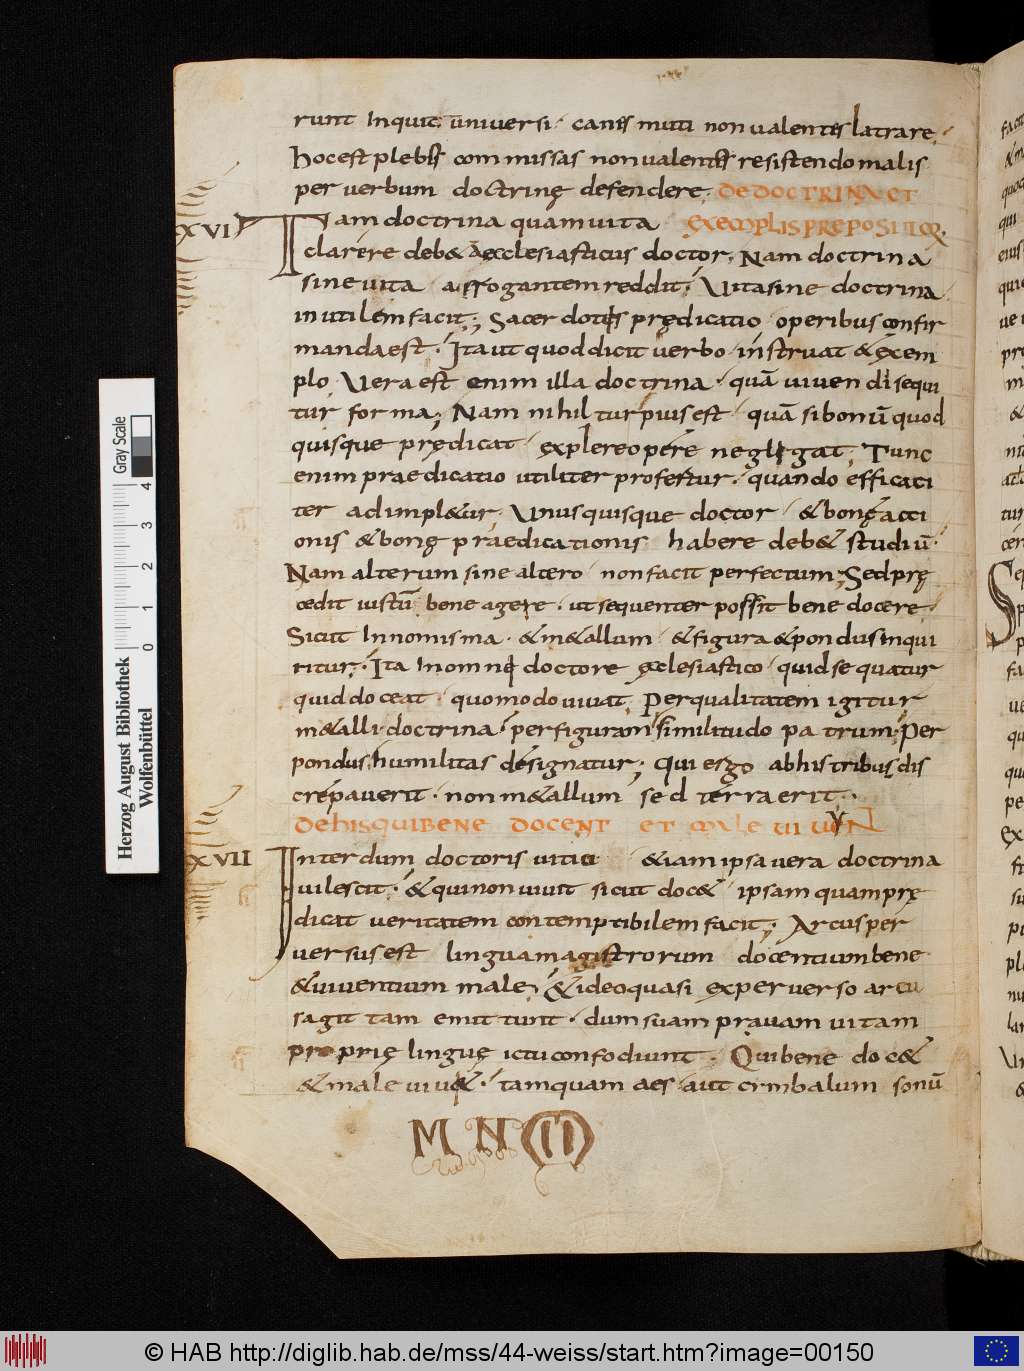 runt Inquit universi · canes muti non valentes latrare
hoc est plebes commissas non valentes resistendo malis
per verbum doctrinę defendere DE DOCTRINA ET
XVI Tam doctrina quam vita EXEMPLIS PREPOSITOR.
clarere deb& aecclesiasticus doctor. Nam doctrina
sine vita arrogantem reddit; Vita sine doctrina
inutilem facit; Sacerdotis prędicatio operibus confir
manda est. Ita ut quod dicit verbo instruat & exem
plo. Vera est enim illa doctrina quā vivendi sequi
tur forma; Nam nihil turpius est quā si bonū quod
quisque prędicat explere opere neglegat; Tunc
enim praedicatio utiliter profertur. quando efficaci
ter adimpl&ur. Unusquisque doctor & bonę acti
onis & bonę praedicationis habere deb& studiū.
Nam alterum sine altero non facit perfectum; Sed prę
cedit iustū bene agere · ut sequenter possit bene docere
Sicut In nomisma · & m&allum & figura & pondus inqui
ritur. Ita In omni doctore ęclesiastico quid sequatur
quid doceat quomodo vivat. Per qualitatem igitur
m&alli doctrina. per figuram similitudo patrum; Per
pondus humilitas designatur; Qui ergo ab his tribus dis
crepaverit · non m&allum sed terra erit.
DE HIS QUI BENE DOCENT ET MALE VIVUNT
XVII Interdum doctoris vitio &iam ipsa vera doctrina
vilescit. & qui non vivit sicut doc& ipsam quam prę
dicat veritatem contemptibilem facit; Arcus per
versus est lingua magistrorum docentium bene
& viventium male; & ideo quasi ex perverso arcu
sagittam emittunt. dum suam pravam vitam
proprię linguę ictu confodiunt. Qui bene doc&
& male viv&. tamquam aes aut cimbalum sonū
M N (II)
Herzog August Bibliothek
Wolfenbüttel
0 1 2 3 4
Gray Scale
© HAB http://diglib.hab.de/mss/44-weiss/start.htm?image=00150